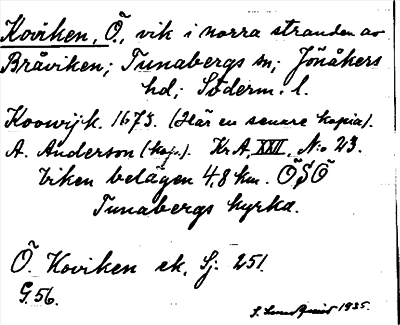 Koviken, Ö., vik i norra stranden av
Bråviken; Tunabergs sn; Jönåkers
hd; Söderm. l.
Koowijk. 1673. (Här en senare kopia).
A. Anderson (kop.). Kr. A. XXII. N:o 23.
Viken belägen 4,8 km. ÖSÖ
Tunabergs kyrka.
Ö. Koviken ek. Sj. 251.
G. 56.
1935.